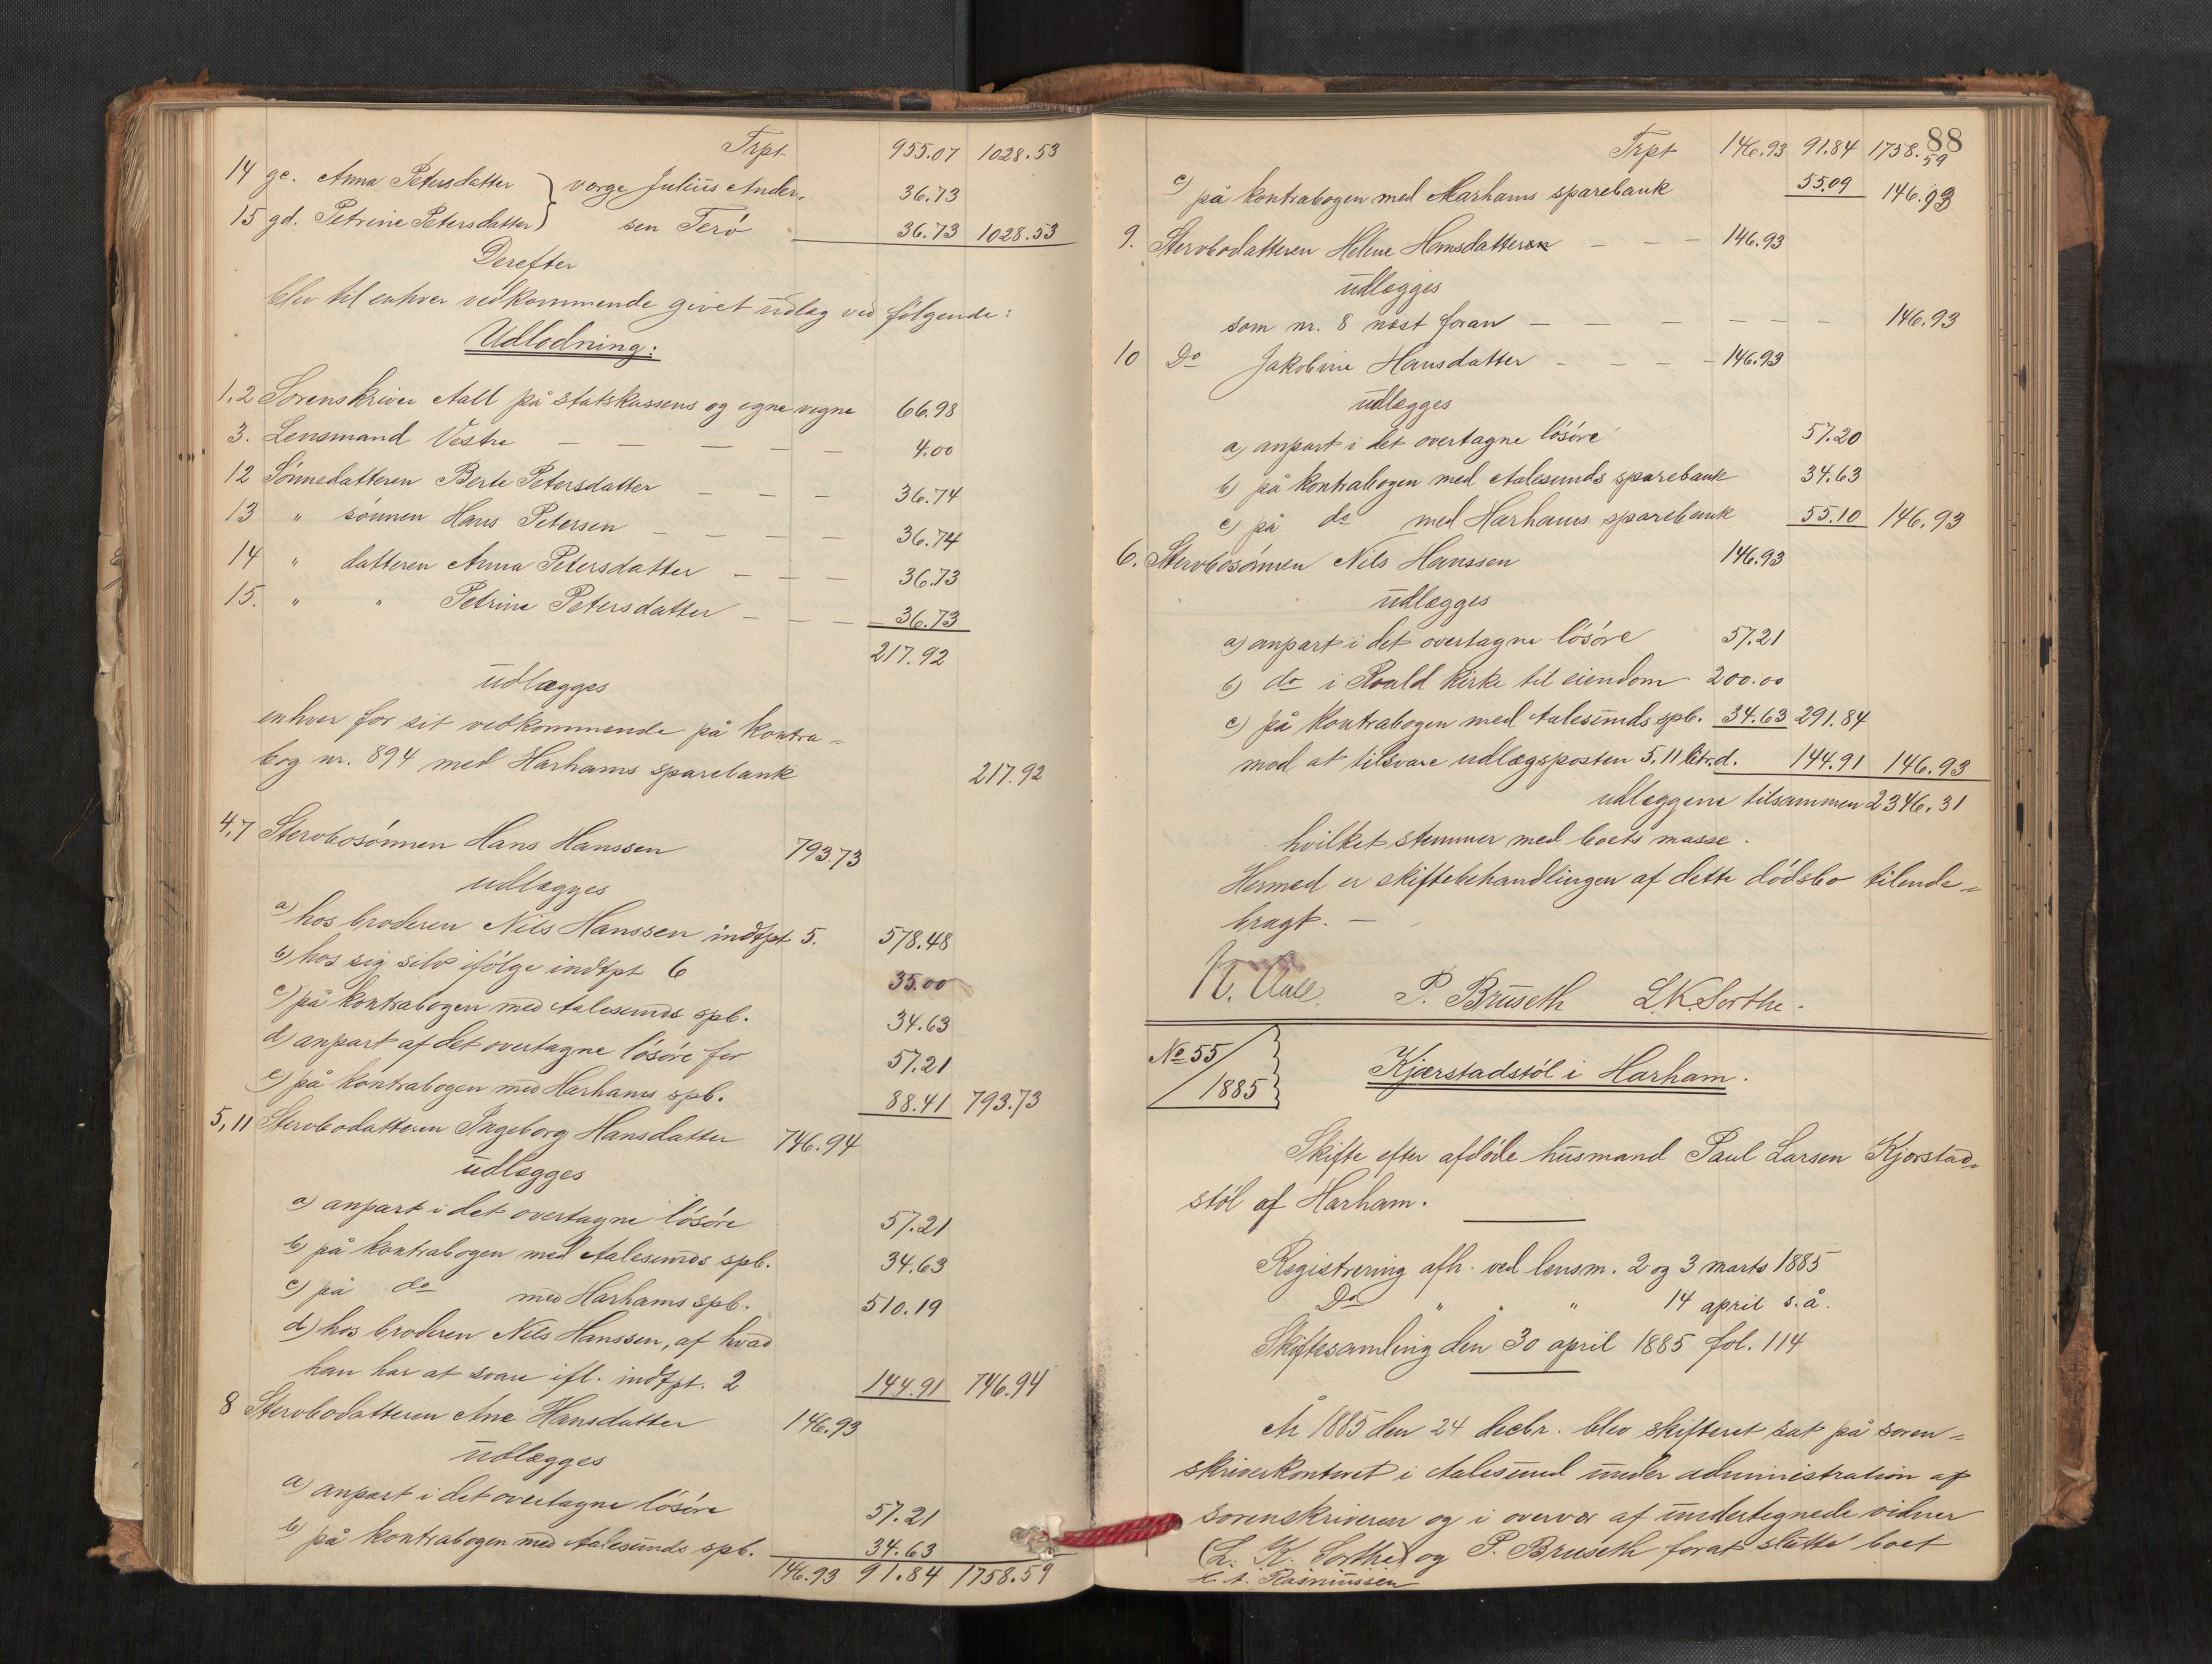 Trpt 955.07 1028.53
14 gc. Anna Petersdatter } værge Julius Ander- 36.73
15 gd. Petrine Petersdatter } sen Terö 36.73 1028.53
Derefter
blev til enhver vedkommende givet udlæg ved følgende:
Udlodning:
1,2 Sorenskriver Aall på statskassens og egne vegne 66.98
3. Lensmand Vestre — — — — 4.00
12 Sönnedatteren Berte Petersdatter — — — 36.74
13 " sönnen Hans Petersen — — — — 36.74
14 " datteren Anna Petersdatter — — — 36.73
15. " " Petrine Petersdatter — — — 36.73
217.92
udlægges
enhver for sit vedkommende på kontra=
bog nr. 894 med Harhams sparebank 217.92
4,7 Stervbosönnen Hans Hanssen 793.73
udlægges
a) hos broderen Nils Hanssen indtpt 5. 578.48
b) hos sig selv ifölge indtpt 6 35.00
c) på kontrabogen med Aalesunds spb. 34.63
d) anpart af det overtagne lösöre for 57.21
e) på kontrabogen med Harhams spb. 88.41 793.73
5,11 Stervbodatteren Ingeborg Hansdatter 746.94
udlægges
a) anpart i det overtagne lösöre 57.21
b) på kontrabogen med Aalesunds spb. 34.63
c) på do med Harhams spb. 510.19
d) hos broderen Nils Hanssen, af hvad
han har at svare ifl. indtpt. 2 144.91 746.94
8 Stervbodatteren Ane Hansdatter 146.93
udlægges
a) anpart i det overtagne lösöre 57.21
b) på kontrabogen med Aalesunds spb. 34.63
146.93 91.84 1758.59
88
Trpt 146.93 91.84 1758.59
c) på kontrabogen med Harhams sparebank 55.09 146.93
9. Stervbodatteren Helene Hansdatter — — — 146.93
udlægges
som nr. 8 næst foran — — — — — — 146.93
10 Do Jakobine Hansdatter — — — 146.93
udlægges
a) anpart i det overtagne lösöre 57.20
b) på kontrabogen med Aalesunds sparebank 34.63
c) på do med Harhams sparebank 55.10 146.93
6. Stervbosönnen Nils Hanssen 146.93
udlægges
a) anpart i det overtagne lösöre 57.21
b) do i Roald kirke til eiendom 200.00
c) på kontrabogen med Aalesunds spb. 34.63 291.84
mod at tilsvare udlægsposten 5,11 litr. d. 144.91 146.93
udlæggene tilsammen 2346.31
hvilket stemmer med boets masse.
Hermed er skiftebehandlingen af dette dödsbo tilende=
bragt. —
N. Aall. P. Bruseth L.K. Sorthe.
No 55/1885
Kjærstadstöl i Harham.
Skifte efter afdøde husmand Paul Larsen Kjorstad-
stöl af Harham.
Registrering afh. ved lensm. 2 og 3 marts 1885
Do " " " 14 april s.å.
Skiftesamling den 30 april 1885 fol. 114
År 1885 den 24 decbr. blev skifteret sat på soren=
skriverkontoret i Aalesund under administration af
sorenskriveren og i overvær af undertegnede vidner
(L. K. Sorthe) og P. Bruseth forat slutte boet
Rasmussen